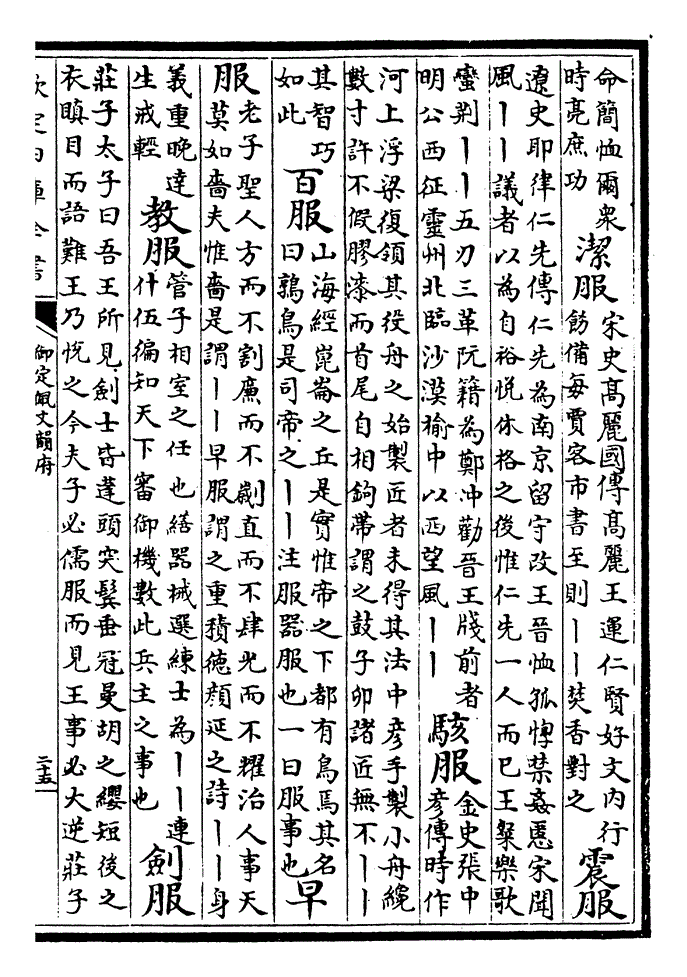 命簡恤爾衆
時亮庶功
潔服
宋史髙麗國傳髙麗王運仁賢好文内行
飭備每賈客市書至則丨丨焚香對之
震服
遼史耶律仁先傳仁先為南京留守改王晉恤孤惸禁姦慝宋聞
風丨丨議者以為自裕悅休格之後惟仁先一人而已王粲樂歌
蠻荆丨丨五刃三革阮籍為鄭沖勸晉王牋前者
明公西征靈州北臨沙漠榆中以西望風丨丨
駭服
金史張中
彦傳時作
河上浮梁復領其役舟之始製匠者未得其法中彦手製小舟纔
數寸許不假膠漆而首尾自相鉤帶謂之鼓子卯諸匠無不丨丨
其智巧
如此
百服
山海經崑崙之丘是實惟帝之下都有鳥焉其名
曰鶉鳥是司帝之丨丨注服器服也一曰服事也
早
服
老子聖人方而不割廉而不劌直而不肆光而不耀治人事天
莫如嗇夫惟嗇是謂丨丨早服謂之重積徳顔延之詩丨丨身
義重晚達
生戒輕
教服
管子相室之任也繕器械選練士為丨丨連
什伍徧知天下審御機數此兵主之事也
劍服
莊子太子曰吾王所見劍士皆蓬頭突鬢垂冠曼胡之纓短後之
衣瞋目而語難王乃悅之今夫子必儒服而見王事必大逆莊子
欽定四庫全書
御定佩文韻府
二十五